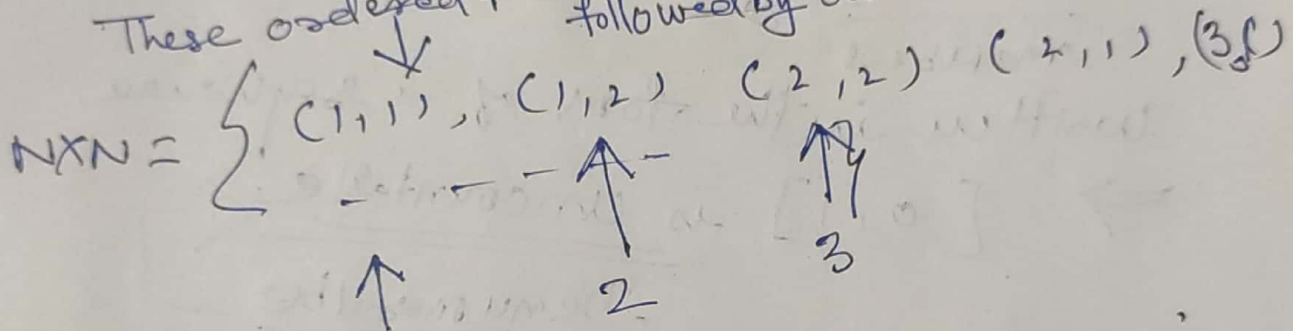 These ordered followed by
N×N = { (1,1), (1,2) (2,2) (2,1), (3,
- - - -
2 3